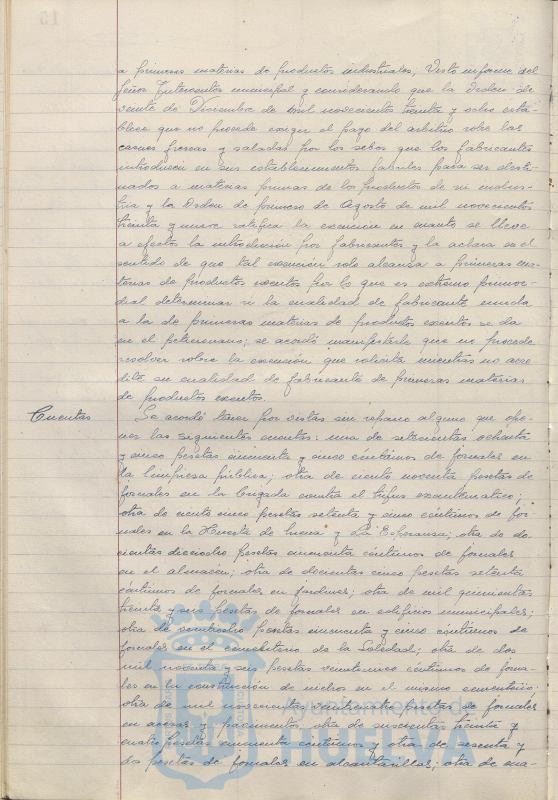 a primeras materias de productos industriales, Visto informe del
Señor Interventor municipal y considerando que la Orden de
veinte de Diciembre de mil novecientos treinta y ocho esta-
blece que no procede exigir el pago del arbitrio sobre las
carnes frescas y saladas por los sebos que los fabricantes
introducen en sus establecimientos fabriles para ser desti-
nados a materias primas de los productos de su indus-
tria y la Orden de primero de Agosto de mil novecientos
treinta y nueve ratifica la exención en cuanto se lleve
a efecto la introducción por fabricantes y la aclara en el
sentido de que tal exención solo alcanza a primeras ma-
terias de productos exentos por lo que es extremo primor-
dial determinar si la cualidad de fabricante unida
a la de primeras materias de productos exentos se da
en el peticionario; se acordó manifestarle que no procede
resolver sobre la exención que solicita mientras no acre-
dite su cualidad de fabricante de primeras materias
de productos exentos.
Cuentas Se acordó tener por vistas sin reparo alguno que opo-
ner las siguientes cuentas: una de setecientas ochenta
y cinco pesetas cincuenta y cinco céntimos de jornales en
la limpieza pública; otra de ciento noventa pesetas de
jornales en la brigada contra el tifus exantematico;
otra de ciento cinco pesetas setenta y cinco céntimos de jor-
nales en la Huerta de Mena y La Esperanza; otra de do-
cientas dieciocho pesetas cincuenta céntimos de jornales
en el almacén; otra de docientas cinco pesetas setenta
céntimos de jornales en jardines; otra de mil quinientas
treinta y seis pesetas de jornales en edificios municipales;
otra de veintiocho pesetas cincuenta y cinco céntimos de
jornales en el cementerio de la Soledad; otra de dos
mil noventa y seis pesetas veinticinco céntimos de jorna-
les en la construcción de nichos en el mismo cementerio;
otra de mil novecientas veinticuatro pesetas de jornales
en aceras y pavimentos, otra de seiscientas treinta y
cuatro pesetas cincuenta céntimos y otra de sesenta y
dos pesetas de jornales en alcantarillas; otra de cua-
Ayuntamiento de
HUELVA